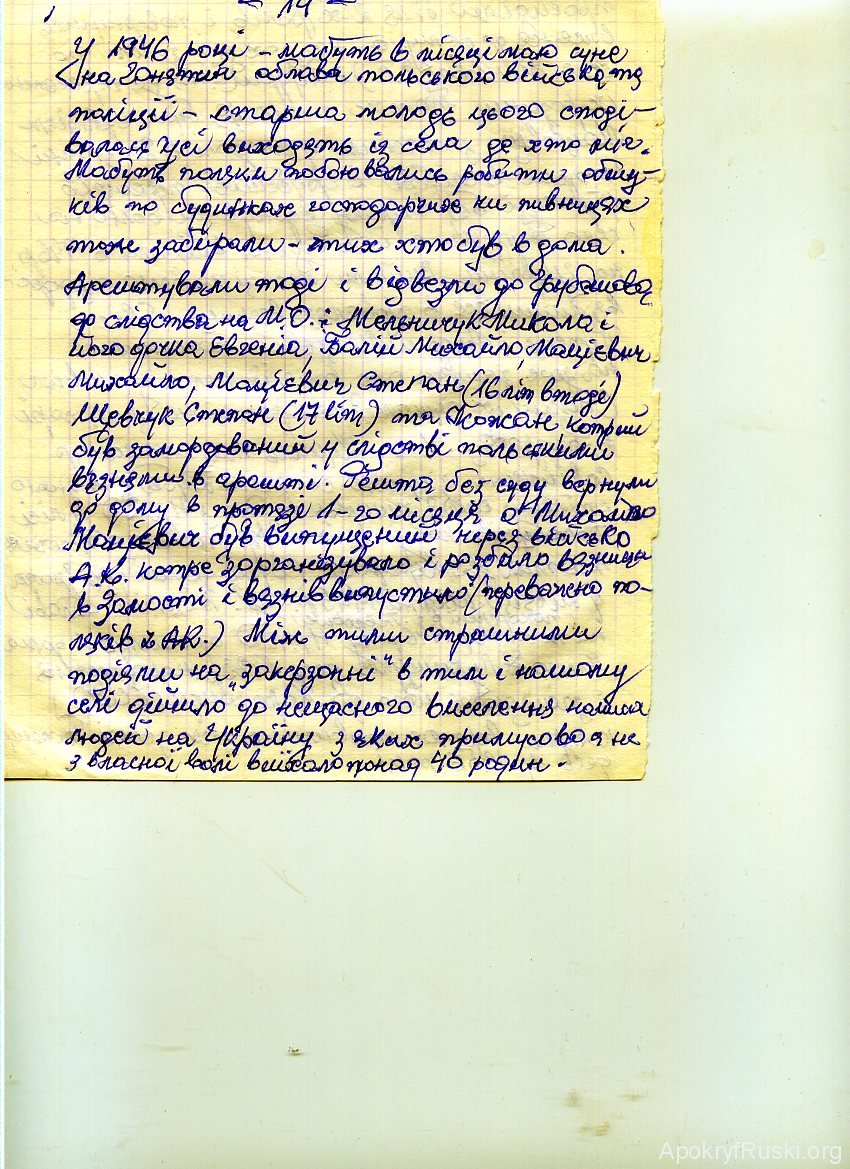 - 14 -
У 1946 році - мабуть в місяці маю суне
на Гонятин облава польського війська та
поліції - старша молодь цього споді-
валася усі виходять із села де хто міг.
Мабуть поляки побоювались робити обшу-
ків по будинках господарчих чи пивницях
тож забирали - тих хто був вдома.
Арештували тоді і відвезли до Грубешова
до слідства на М.О. і Мельничук Микола і
його дочка Евгенія, Балій Михайло, Мацієвич
Михайло, Мацієвич Степан (16 літ втоді)
Шевчук Степан (17 літ) та Кожан, котрий
був замордований у слідстві польськими
вязнями в арешті. Решта без суду вернули
до дому в протязі 1-го місяця а Михайло
Мацієвич був випущений через військо
А.К. котре зорганізувало і розбило вязницю
в Замості і вязнів випустило (переважно по-
ляків з АК.) Між тими страшними
подіями на "закерзонні" в тим і нашому
селі дійшло до нещасного виселення наших
людей на Україну з яких примусово а не
з власної волі виїхало понад 40 родин.
ApokryfRuski.org